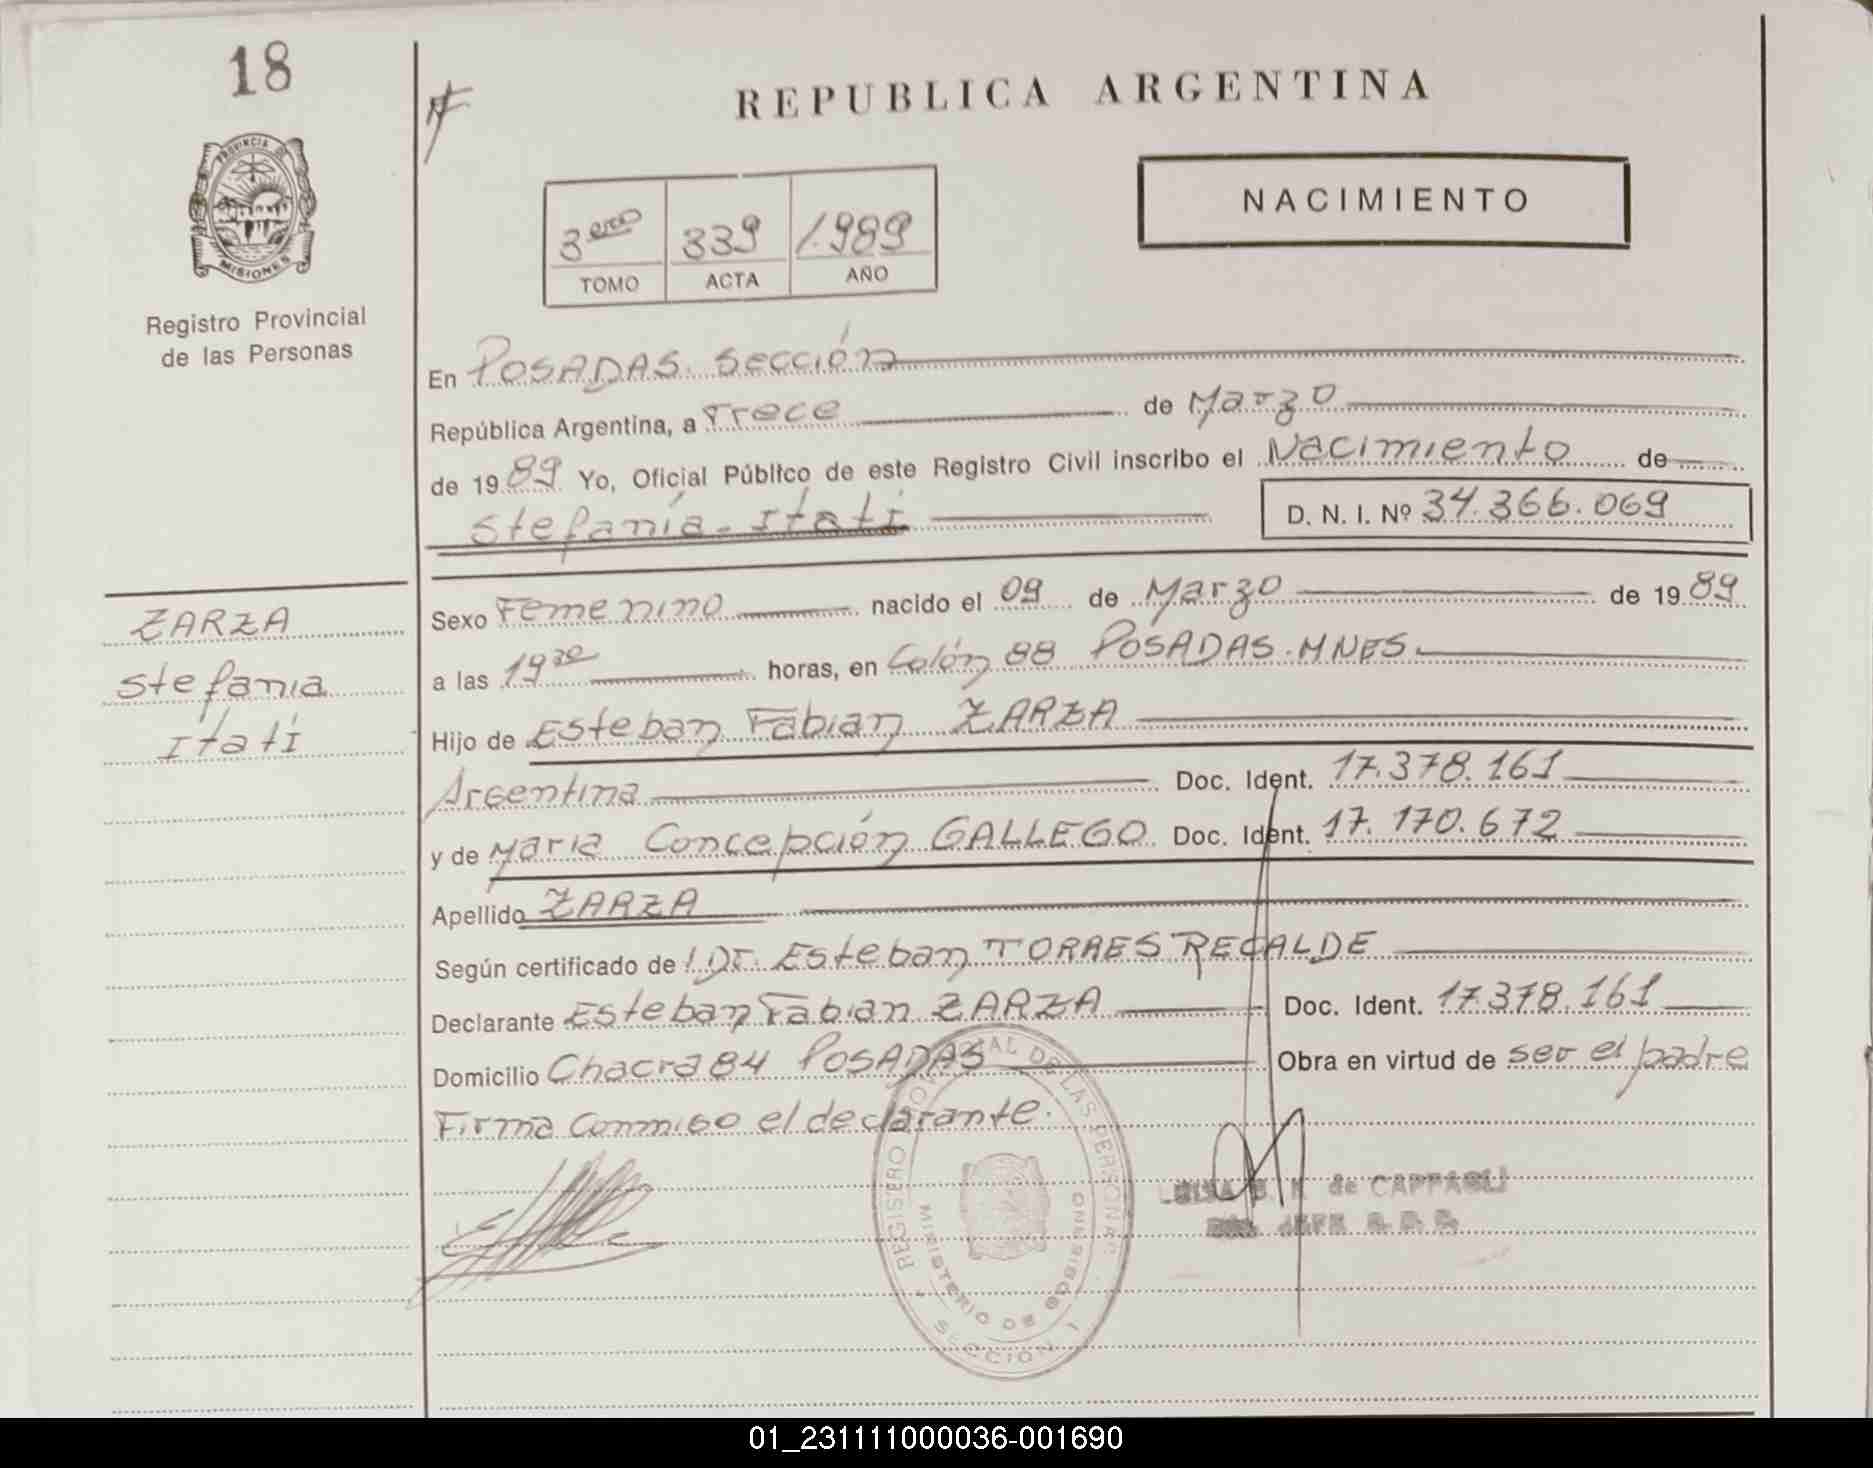 18
REPUBLICA ARGENTINA
PROVINCIA DE
MISIONES
NACIMIENTO
3ero 339 1.989
TOMO ACTA AÑO
Registro Provincial
de las Personas
En POSADAS. Sección
República Argentina, a Trece de Marzo
de 1989 Yo, Oficial Público de este Registro Civil inscribo el Nacimiento de
Stefanía - Itatí
D. N. I. Nº 34.366.069
ZARZA
Stefania
Itatí
Sexo Femenino nacido el 09 de Marzo de 1989
a las 19 30 horas, en Colón 88 POSADAS. MNES.
Hijo de Esteban Fabian ZARZA
Argentina Doc. Ident. 17.378.161
y de Maria Concepción GALLEGO Doc. Ident. 17.170.672
Apellido ZARZA
Según certificado de l Dr. Esteban TORRES RECALDE
Declarante Esteban Fabian ZARZA Doc. Ident. 17.378.161
Domicilio Chacra 84 POSADAS Obra en virtud de ser el padre
Firma Conmigo el declarante.
REGISTRO PROVINCIAL DE LAS PERSONAS
MINISTERIO DE GOBIERNO
SECCION 1
de CAPPAGLI
JEFE
01_231111000036-001690